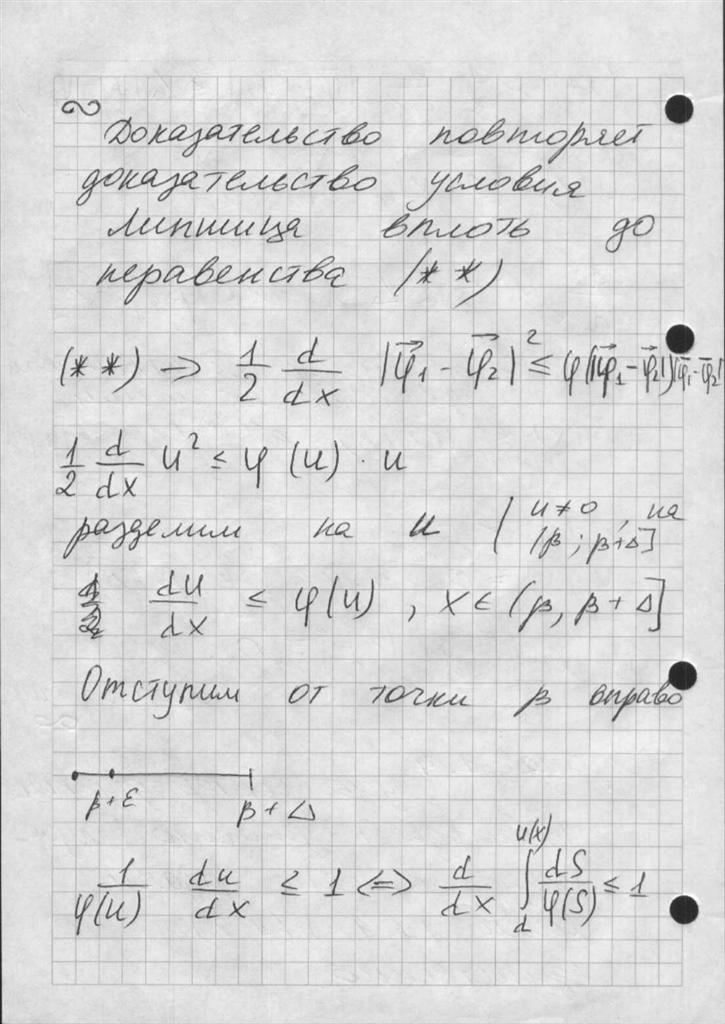 2
Доказательство повторяет
доказательство условия
Липшица вплоть до
неравенства (**)
(**) → 1/2 d/dx |φ⃗₁ - φ⃗₂|² ≤ φ(|φ⃗₁ - φ⃗₂|)|φ⃗₁ - φ⃗₂|
1/2 d/dx u² ≤ φ(u) · u
разделим на u (u ≠ 0, на
(β; β+Δ]
du/dx ≤ φ(u), x ∈ (β, β + Δ]
Отступим от точки β вправо
β + ε β + Δ
1/φ(u) du/dx ≤ 1 ⟺ d/dx ∫_d^{u(x)} dS/φ(S) ≤ 1